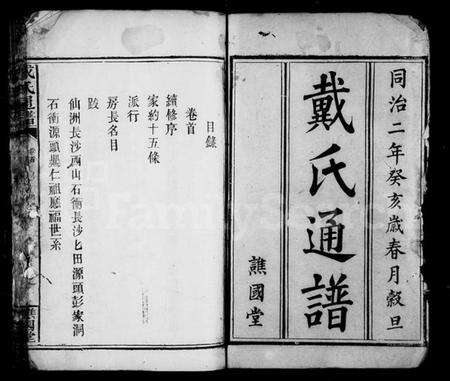 同治二年癸亥歲春月穀旦
戴氏通譜
譙國堂
目錄
卷首
續修序
家約十五條
派行
房長名目
跋
仙洲長沙西山石衕長沙七田源頭彭家洞
石衕源頭興仁祖應福世系
戴氏通譜